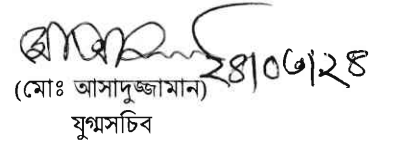 ২৪|০৩|২৪
(মোঃ আসাদুজ্জামান)
যুগ্মসচিব